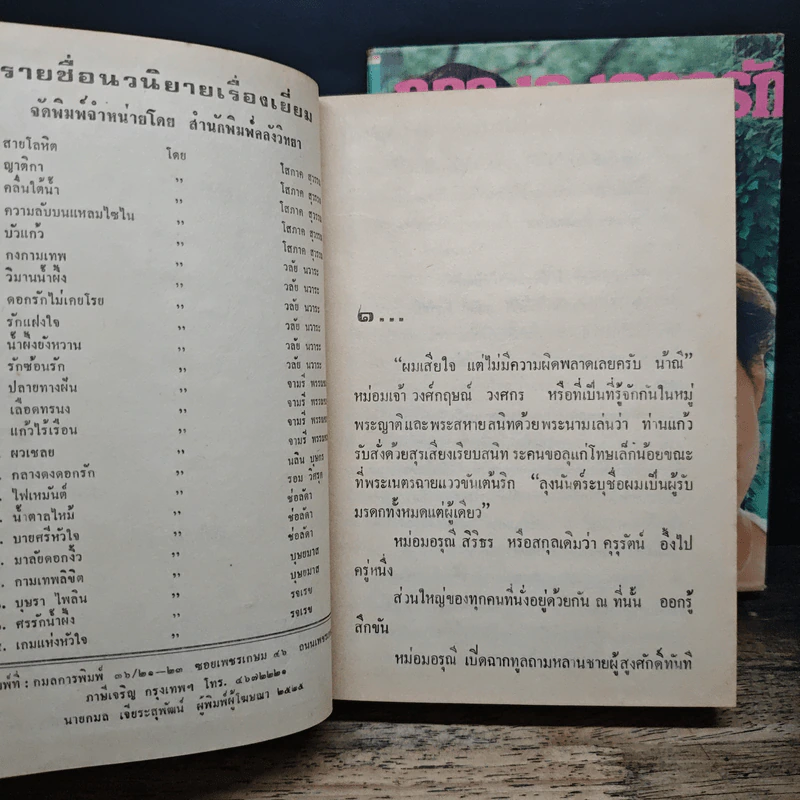 รายชื่อนวนิยายเรื่องเยี่ยม
จัดพิมพ์จำหน่ายโดย สำนักพิมพ์คลังวิทยา
สายโลหิต โดย โสภาค
ญาติกา ,, โสภาค
คลื่นใต้น้ำ ,, โสภาค
ความลับบนแหลมไซไน ,, โสภาค
บัวแก้ว ,, โสภาค
กงกามเทพ ,, วลัย นวาระ
วิมานน้ำผึ้ง ,, วลัย นวาระ
ดอกรักไม่เคยโรย ,, วลัย นวาระ
รักแฝงใจ ,, วลัย นวาระ
น้ำผึ้งยังหวาน ,, วลัย นวาระ
รักซ้อนรัก ,, วลัย นวาระ
ปลายทางฝัน ,, จามรี
เลือดทรนง ,, จามรี
แก้วไร้เรือน ,, จามรี
ผวเชลย ,, จามรี
กลางดงดอกรัก ,, นลิน บุษกร
ไฟเหมันต์ ,, รอม
น้ำตาลไหม้ ,, ช่อลัดา
บายศรีหัวใจ ,, ช่อลัดา
มาลัยดอกงิ้ว ,, บุษยมาส
กามเทพลิขิต ,, บุษยมาส
บุษรา ไพลิน ,, รจเรข
ศรรักน้ำผึ้ง ,, รจเรข
เกมแห่งหัวใจ ,, รจเรข
พิมพ์ที่ : กมลการพิมพ์ ๓๖/๒๑—๒๓ ซอยเพชรเกษม ๔๖
ภาษีเจริญ กรุงเทพฯ โทร. ๔๖๗๒๒๒๑
นายกมล เจียระสุพัฒน์ ผู้พิมพ์ผู้โฆษณา ๒๕๒๕
๒...
“ผมเสียใจ แต่ไม่มีความผิดพลาดเลยครับ น้าณี”
หม่อมเจ้า วงศ์กฤษณ์ วงศกร หรือที่เป็นที่รู้จักกันในหมู่
พระญาติและพระสหายสนิทด้วยพระนามเล่นว่า ท่านแก้ว
รับสั่งด้วยสุรเสียงเรียบสนิท ระคนขอลุแก่โทษเล็กน้อยขณะ
ที่พระเนตรฉายแววขันเต้นริก “ลุงนันต์ระบุชื่อผมเป็นผู้รับ
มรดกทั้งหมดแต่ผู้เดียว”
หม่อมอรุณี สิริธร หรือสกุลเดิมว่า คุรุรัตน์ อึ้งไป
ครู่หนึ่ง
ส่วนใหญ่ของทุกคนที่นั่งอยู่ด้วยกัน ณ ที่นั้น ออกรู้
สึกขัน
หม่อมอรุณี เปิดฉากทูลถามหลานชายผู้สูงศักดิ์ทันที